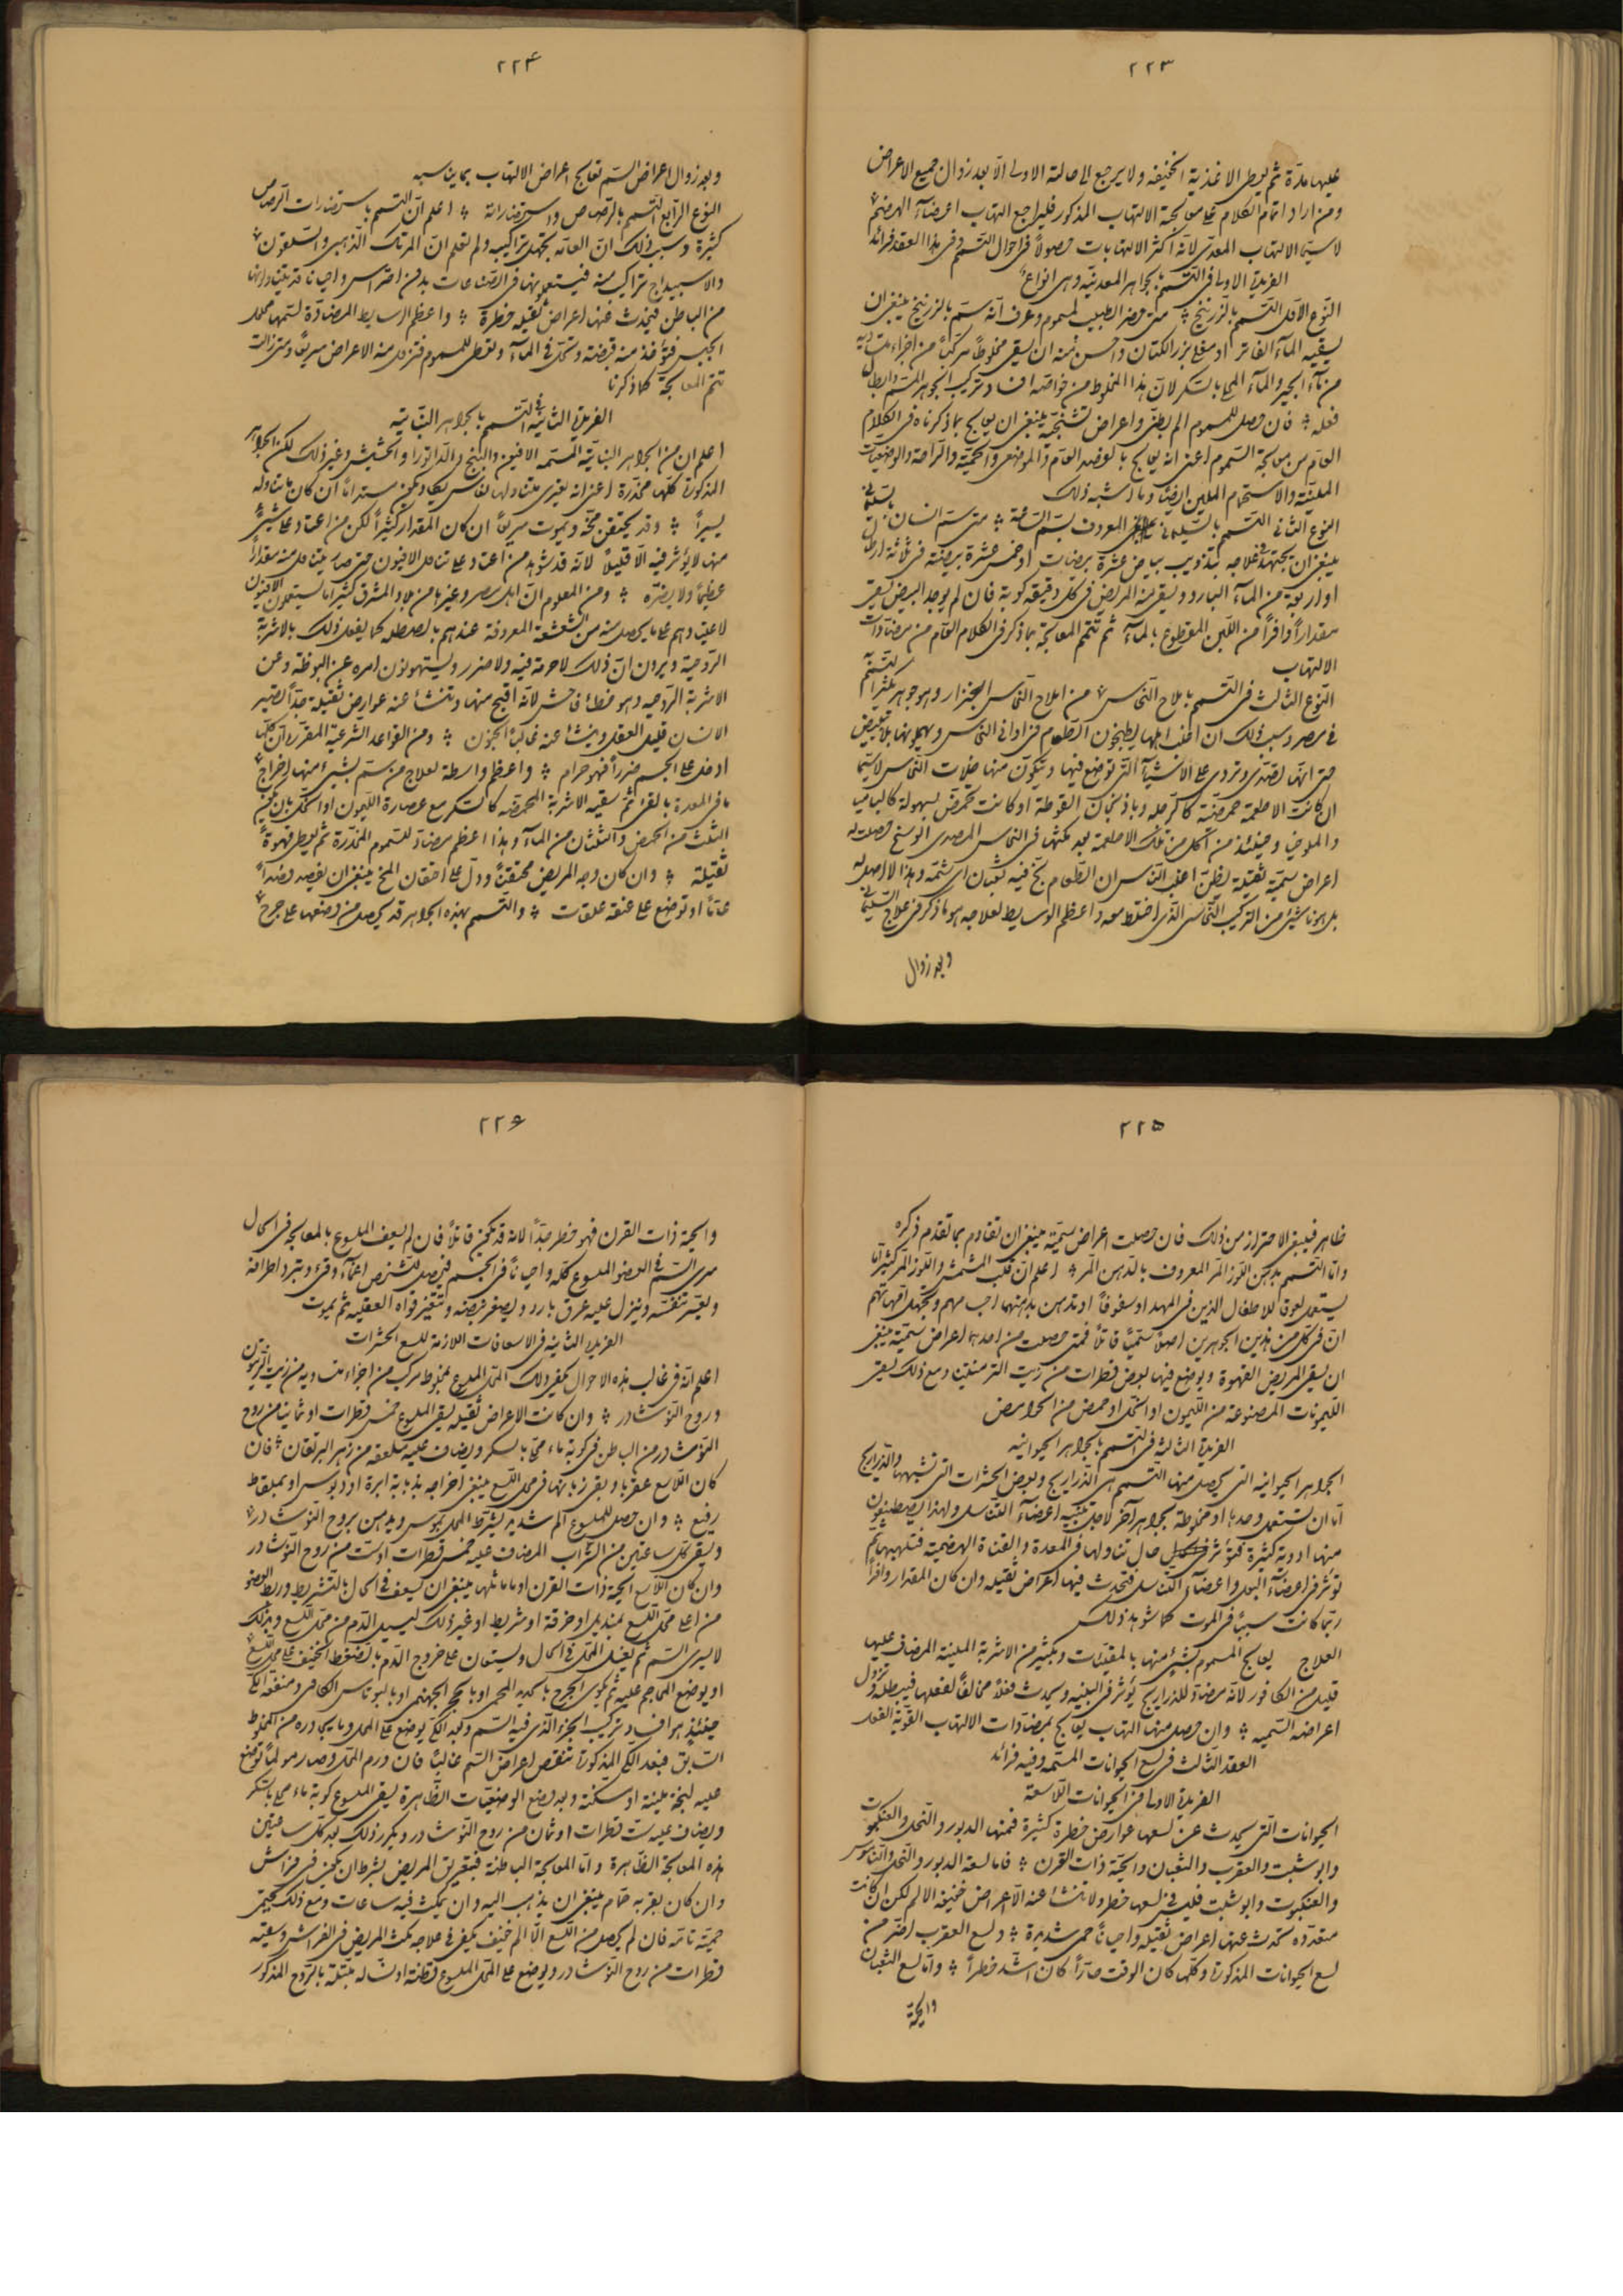 ٢٢٣
عليها مدّة ثم يعطى الاغذية الخفيفه ولا يرجع الى حالته الاولى الا بعد زوال جميع الاعراض
ومن اراد اتمام الكلام على معالجة الالتهاب المذكور فليراجع التهاب اعضآء الهضم
لا سيّما الالتهاب المعدى لانّه اكثر الالتهابات حصولاً فى احوال التسمم وفى هذا العقد فرائد
الفريدة الاولى فى التسمم بالجواهر المعدنيّه وهى انواع
النّوع الاوّل التسمم بالزرنيخ متى حضر الطبيب لمسموم وعرف انّه سمّ بالزرنيخ ينبغى ان
يسقيه المآء الفاتر او مغلى بزر الكتّان واحسن منه ان يسقى مخلوطاً مركّباً من اجزاء متساويه
من مآء الجير والمآء المحلى بالسكر لانّ هذا المخلوط من خواصّه افساد تركيب الجوهر السّم وابطال
فعله فان حصل للمسموم الم بطنىّ واعراض تشنّجيّه ينبغى ان يعالج بما ذكرناه فى الكلام
العام من معالجة السّموم اعنى انه يعالج بالفصد العام والموضعى والحمّية والرّاحة والوضعيّات
المليّنة والاستحمام الملين ايضاً وما اشبه ذلك
النوع الثانى التسمم بالسّليمانى المعروف بسمّ السّاعة متى سمّ انسان بالسليمانى
ينبغى ان يجتهد فى علاجه بتذويب بياض عشرة بيضات او خمس عشرة بيضة فى ثلاثة ارطال
او اربعة من المآء البارد ويسقى منه المريض فى كل دقيقه كوبة فان لم يوجد البيض يسقى
مقداراً وافراً من اللّبن المقطوع بالمآء ثم تتمّم المعالجة بما ذكر فى الكلام العام من مضادّات
الالتهاب
النّوع الثالث فى التسمم باملاح النّحاس من املاح النّحاس الجنزار وهو جوهر يكثر التسمم به
فى مصر وسبب ذلك ان اغلب اهلها يطبخون الطّعام فى اوانى النّحاس ويهملونها بلا تبييض
حتى انّها تصدّى وتروى على الاشيآء الّتى توضع فيها ويتكوّن منها خلّات النّحاس لا سيّما
ان كانت الاطعمة حمضيّة كالرجله وباذنجان القوطة او كانت تحمّض بسهولة كالباميا
والملوخيا وحينئذ من اكل من تلك الاطعمة بعد مكثها فى النحاس المصدى الوسخ حصلت له
اعراض سمّية ثقيلة يظنّ اغلب النّاس ان الطّعام بخّ فيه ثعبان اى سمّه وهذا لا اصل له
بل هو ناشئ من التركيب النّحاسى الّذى اختلط معه واعظم الوسايط لعلاجه هو ما ذكر فى علاج السّليمانى
وبعد زوال
٢٢۴
وبعد زوال اعراض السّم تعالج اعراض الالتهاب بما يناسبه
النوع الرّابع التسمم بالرّصاص واسبتحضاراته اعلم انّ التسمم باستحضارات الرّصاص
كثيرة وسبب ذلك انّ العامّه تجتهد تراكيبه ولم تعلم انّ المرتك الذّهبى والسّلقون
والاسبيداج تراكيب منه فيستعملونها فى الصّناعات بدون احتراس واحيانا قد يتناولونها
من الباطن فيحدث عنها اعراض ثقيله خطرة واعظم الوسايط المضادّة لسمّها محلول
الجبس فيؤخذ منه قبضة وتحلّ فى المآء وتعطى للمسموم فتزول منه الاعراض سريعاً ومتى زالت
تتمّ المعالجة كما ذكرنا
الفريدة الثانيه فى التسمم بالجواهر النّباتيّه
اعلم ان من الجواهر النباتيّة المسمّه الافيون والبنج والدّاتورا والحشيش وغير ذلك لكن الجواهر
المذكورة كلّها مخدّرة اعنى انه يعترى متناولها نعاس يكاد يكون مستداماً ان كان ما تناوله
يسيراً وقد يحتقن مخّه ويموت سريعاً ان كان المقدار كثيراً لكن من اعتاد على شئ
منها لا يؤثر فيه الّا قليلاً لانّه قد شوهد من اعتاد على تناول الافيون حتى صار يتناول منه مقداراً
عظيماً ولا يضرّه ومن المعلوم انّ اهل مصر وغيرها من بلاد المشرق كثيراً ما يستعملون الافيون
لاعتيادهم على ما يحصل منه من النّشغشة المعروفة عندهم بالصطله كما يفعل ذلك بالاشربة
الرّوحيّة ويرون انّ ذلك لا حرمة فيه ولا ضرر ويستهولون امره عن البوظة وعن
الاشربة الرّوحيه وهو خطأ فاحش لانّه اقبح منها وتنشأ عنه عوارض ثقيلة جدّاً تصيّر
الانسان قليل العقل وينشأ عنه غالباً الجنون ومن القواعد الشّرعيّة المقرّرة ان كلّ ما
ادخل على الجسم ضرراً فهو حرام واعظم واسطة لعلاج من سمّ بشئ منها اخراج
ما فى المعدة بالقئ ثم سقيه الاشربة المحمّضه كالسكر مع عصارة الليمون او الخلّ بان يكون
الثلث من الحمض والثلثان من المآء وهذا اعظم مضادّ للسّموم المخدّرة ثم يعطى قهوة
ثقيلة وان كان وجه المريض محتقناً ودلّ على احتقان المخّ ينبغى ان يفصد فصداً
عامّاً او توضع على عنقه علقات والتسمم بهذه الجواهر قد يحصل من وضعها على جرح
٢٢۵
ظاهر فينبغى الاحتراز من ذلك فان حصلت اعراض سمّيّة ينبغى ان تقاوم بما تقدم ذكره
وامّا التسمم بدهن اللّوز المرّ المعروف بالدّهن المرّ اعلم انّ قلب المشمش واللّوز المرّ كثيراً ما
يستعمل لعوقا للاطفال الذين فى المهد او سفوفاً او تدهن بدهنهما اجسامهم وتجهل امّهاتهم
انّ فى كلّ من هذين الجوهرين اصلاً سمّيّاً قاتلاً فمتى حصلت من احدهما اعراض سمّيّة ينبغى
ان يسقى المريض القهوة ويوضع فيها بعض قطرات من زيت الترمنتينا ومع ذلك يسقى
الليمونات المصنوعة من الليمون او الخلّ او حمض من الحوامض
الفريدة الثالثه فى التسمم بالجواهر الحيوانيه
الجواهر الحيوانيه التى يحصل منها التسمم هى الذّراريح وبعض الحشرات التى تشبهها والذراريح
امّا ان تستعمل وحدها او مخلوطة بجواهر آخر لاجل تنبيه اعضآء التّناسل ولهذا يصطنعون
منها ادوية كثيرة فتؤثر حال تناولها فى المعدة والقناة الهضميّة فتلهبهما ثم
تؤثر فى اعضآء البول واعضآء التناسل فتحدث فيها اعراض ثقيله وان كان المقدار وافراً
ربّما كانت سبباً فى الموت كما شوهد ذلك
العلاج يعالج المسموم بشئ منها بالمقيّئات وبكثير من الاشربة المليّنة المضاف عليها
قليل من الكافور لانّه مضادّ للذراريح يؤثر فى البنيه ويحدث فعلاً مخالفاً لفعلها فيبطله وتزول
اعراضه السّميه وان حصل منها التهاب يعالج بمضادات الالتهاب القويّة الفعل
العقد الثّالث فى لسع الحيوانات المسمّه وفيه فرائد
الفريدة الاولى فى الحيوانات اللّاسعة
الحيوانات التى يحدث عن لسعها عوارض خطرة كثيرة فمنها الدبور والنّحل والعنكبوت
وابو شبت والعقرب والثعبان والحيّة ذات القرن فامّا لسعة الدبور والنّحل والنّاموس
والعنكبوت وابو شبت فليس فى لسعها خطر ولا تنشأ عنه الّا اعراض خفيفه الالم لكن ان كانت
متعدّده تحدث عنها اعراض ثقيله واحياناً حمى شديدة ولسع العقرب اضرّ من
لسع الحيوانات المذكورة وكلما كان الوقت حارّاً كان اشدّ خطراً وامّا لسع الثعبان
والحيّة
٢٢۶
والحيّة ذات القرن فهو خطر جدّاً لانه قد يكون قاتلاً فان لم يسعف الملسوع بالمعالجه فى الحال
سرى السّم فى العضو الملسوع كلّه واحياناً فى الجسم فيحصل للشخص اغمآء وقئ وتبرد اطرافه
ويعسر تنفّسه وينزل عليه عرق بارد ويصغر نبضه وتتغيّر قواه العقليه ثم يموت
الفريدة الثانيه فى الاسعافات اللازمة للسع الحشرات
اعلم انّه فى غالب هذه الاحوال يكفى دلك المحلّ الملسوع بمخلوط مركّب من اجزاء متساويه من زيت الزيتون
وروح النّوشادر وان كانت الاعراض ثقيله يسقى الملسوع خمس قطرات او ثمانيا من روح
النّوشادر من الباطن فى كوبة ماء محلّى بالسكر ويضاف عليه ملعقه من زهر البرتقان فان
كان اللّاسع عقربا وبقى زبانها فى محل اللّسع ينبغى اخراجه بذبابة ابرة او دبوس او بملقاط
رفيع وان حصل للملسوع الم شديد يشرط المحل بموسى ويدهن بروح النّوشادر
ويسقى كلّ ساعتين من الشّراب المضاف عليه خمس قطرات او ستّ من روح النّوشادر
وان كان اللّاسع الحيّة ذات القرن او ما ماثلها ينبغى ان يسعف فى الحال بالتشريط وربط العضو
من اعلى محلّ اللّسع بمنديل او خرقة او شريط او غير ذلك ليسيل الدّم من محلّ اللّسع وبذلك
لا يسرى السّم ثم يغسل المحلّ فى الحال ويستعان على خروج الدّم بالضغط الخفيف على محلّ اللّسع
او يوضع المحاجم عليه ثم يكوى الجرح بالحديد المحمى او بالحجر الجهنمى او بالبوتاس الكاوى ومنفعة الكىّ
حينئذ هو افساد تركيب الجزء الّذى فيه السّم وبعد الكىّ يوضع على المحل وما يجاوره من المخلوط
السّابق فبعد الكىّ المذكور تنقص اعراض السّم غالباً فان ورم المحلّ وصار مولماً توضع
عليه لبخة مليّنة او مسكنة وبعد وضع الوضعيّات الظّاهرة يسقى الملسوع كوبة ماء محلّى بالسكر
ويضاف عليه ستّ قطرات او ثمان من روح النّوشادر ويكرر ذلك بعد كلّ ساعتين
هذه المعالجة الظّاهرة وامّا المعالجة الباطنة فبتعريق المريض بشرط ان يكون فى فراش
وان كان بقربه حمّام ينبغى ان يذهب اليه وان يمكث فيه ساعات ومع ذلك يحتمى
حميّة تامّه فان لم يحصل من اللّسع الّا الم خفيف يكفى فى علاجه مكث المريض فى الفراش وسقيه
قطرات من روح النّوشادر ويوضع على المحلّ الملسوع قطنة او نسّاله مبتلّة بالرّوح المذكور